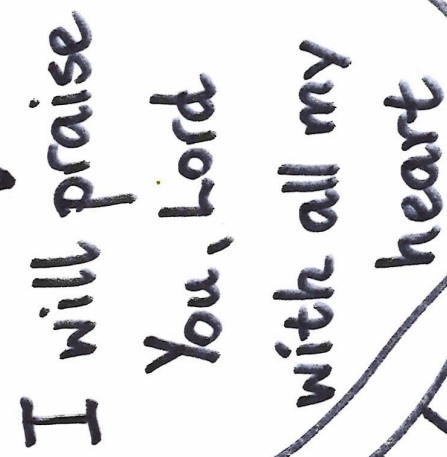 I will praise
You, Lord
with all my
heart